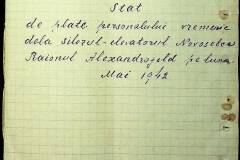 Stat
de plate personalului vremelnic
dela silozul-elevatorul Novoselca
Raionul Alexandrofeld pe luna
Mai 1942